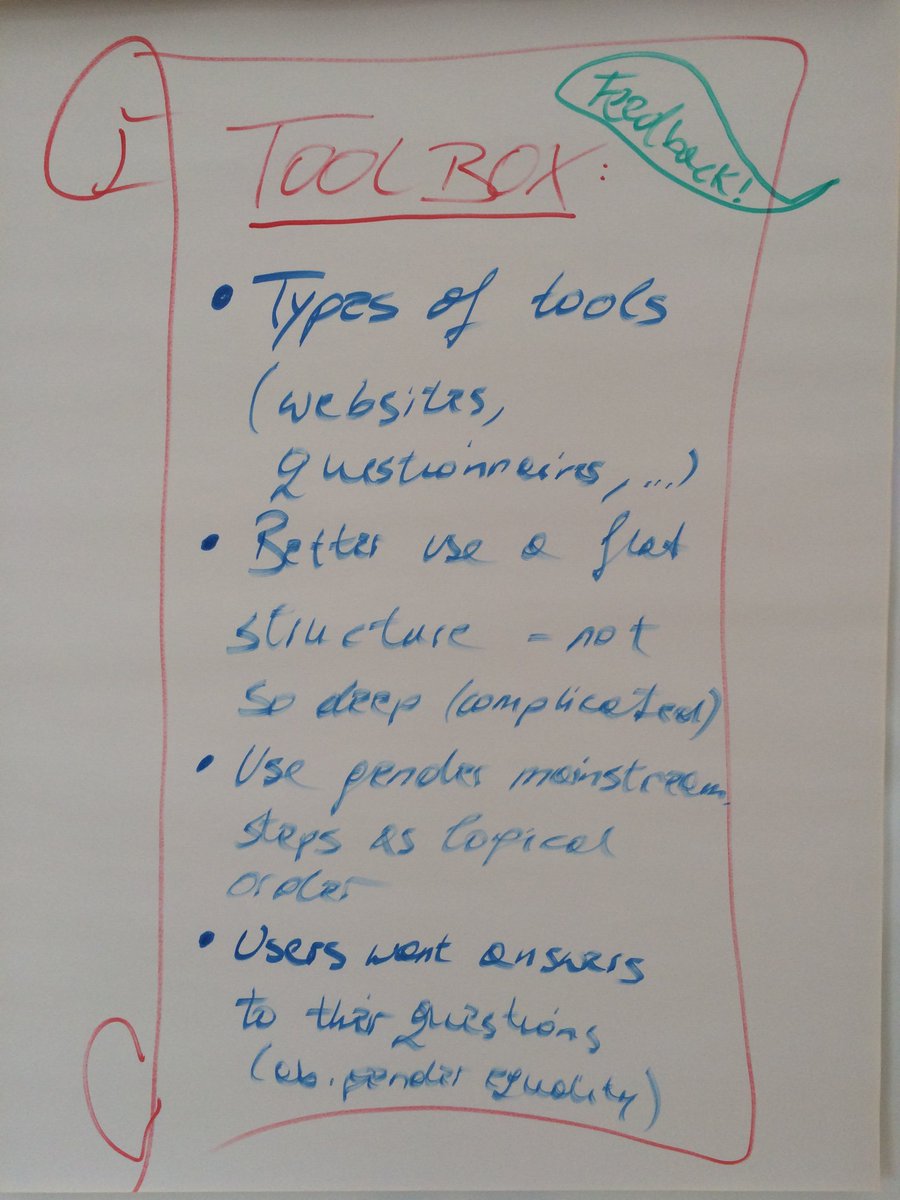 TOOLBOX:
Feedback!
• Types of tools
(websites,
questionnaires, ...)
• Better use a flat
structure - not
so deep (complicated)
• Use gender mainstream.
steps as logical
order
• Users want answers
to thier questions
(ab. gender equality)